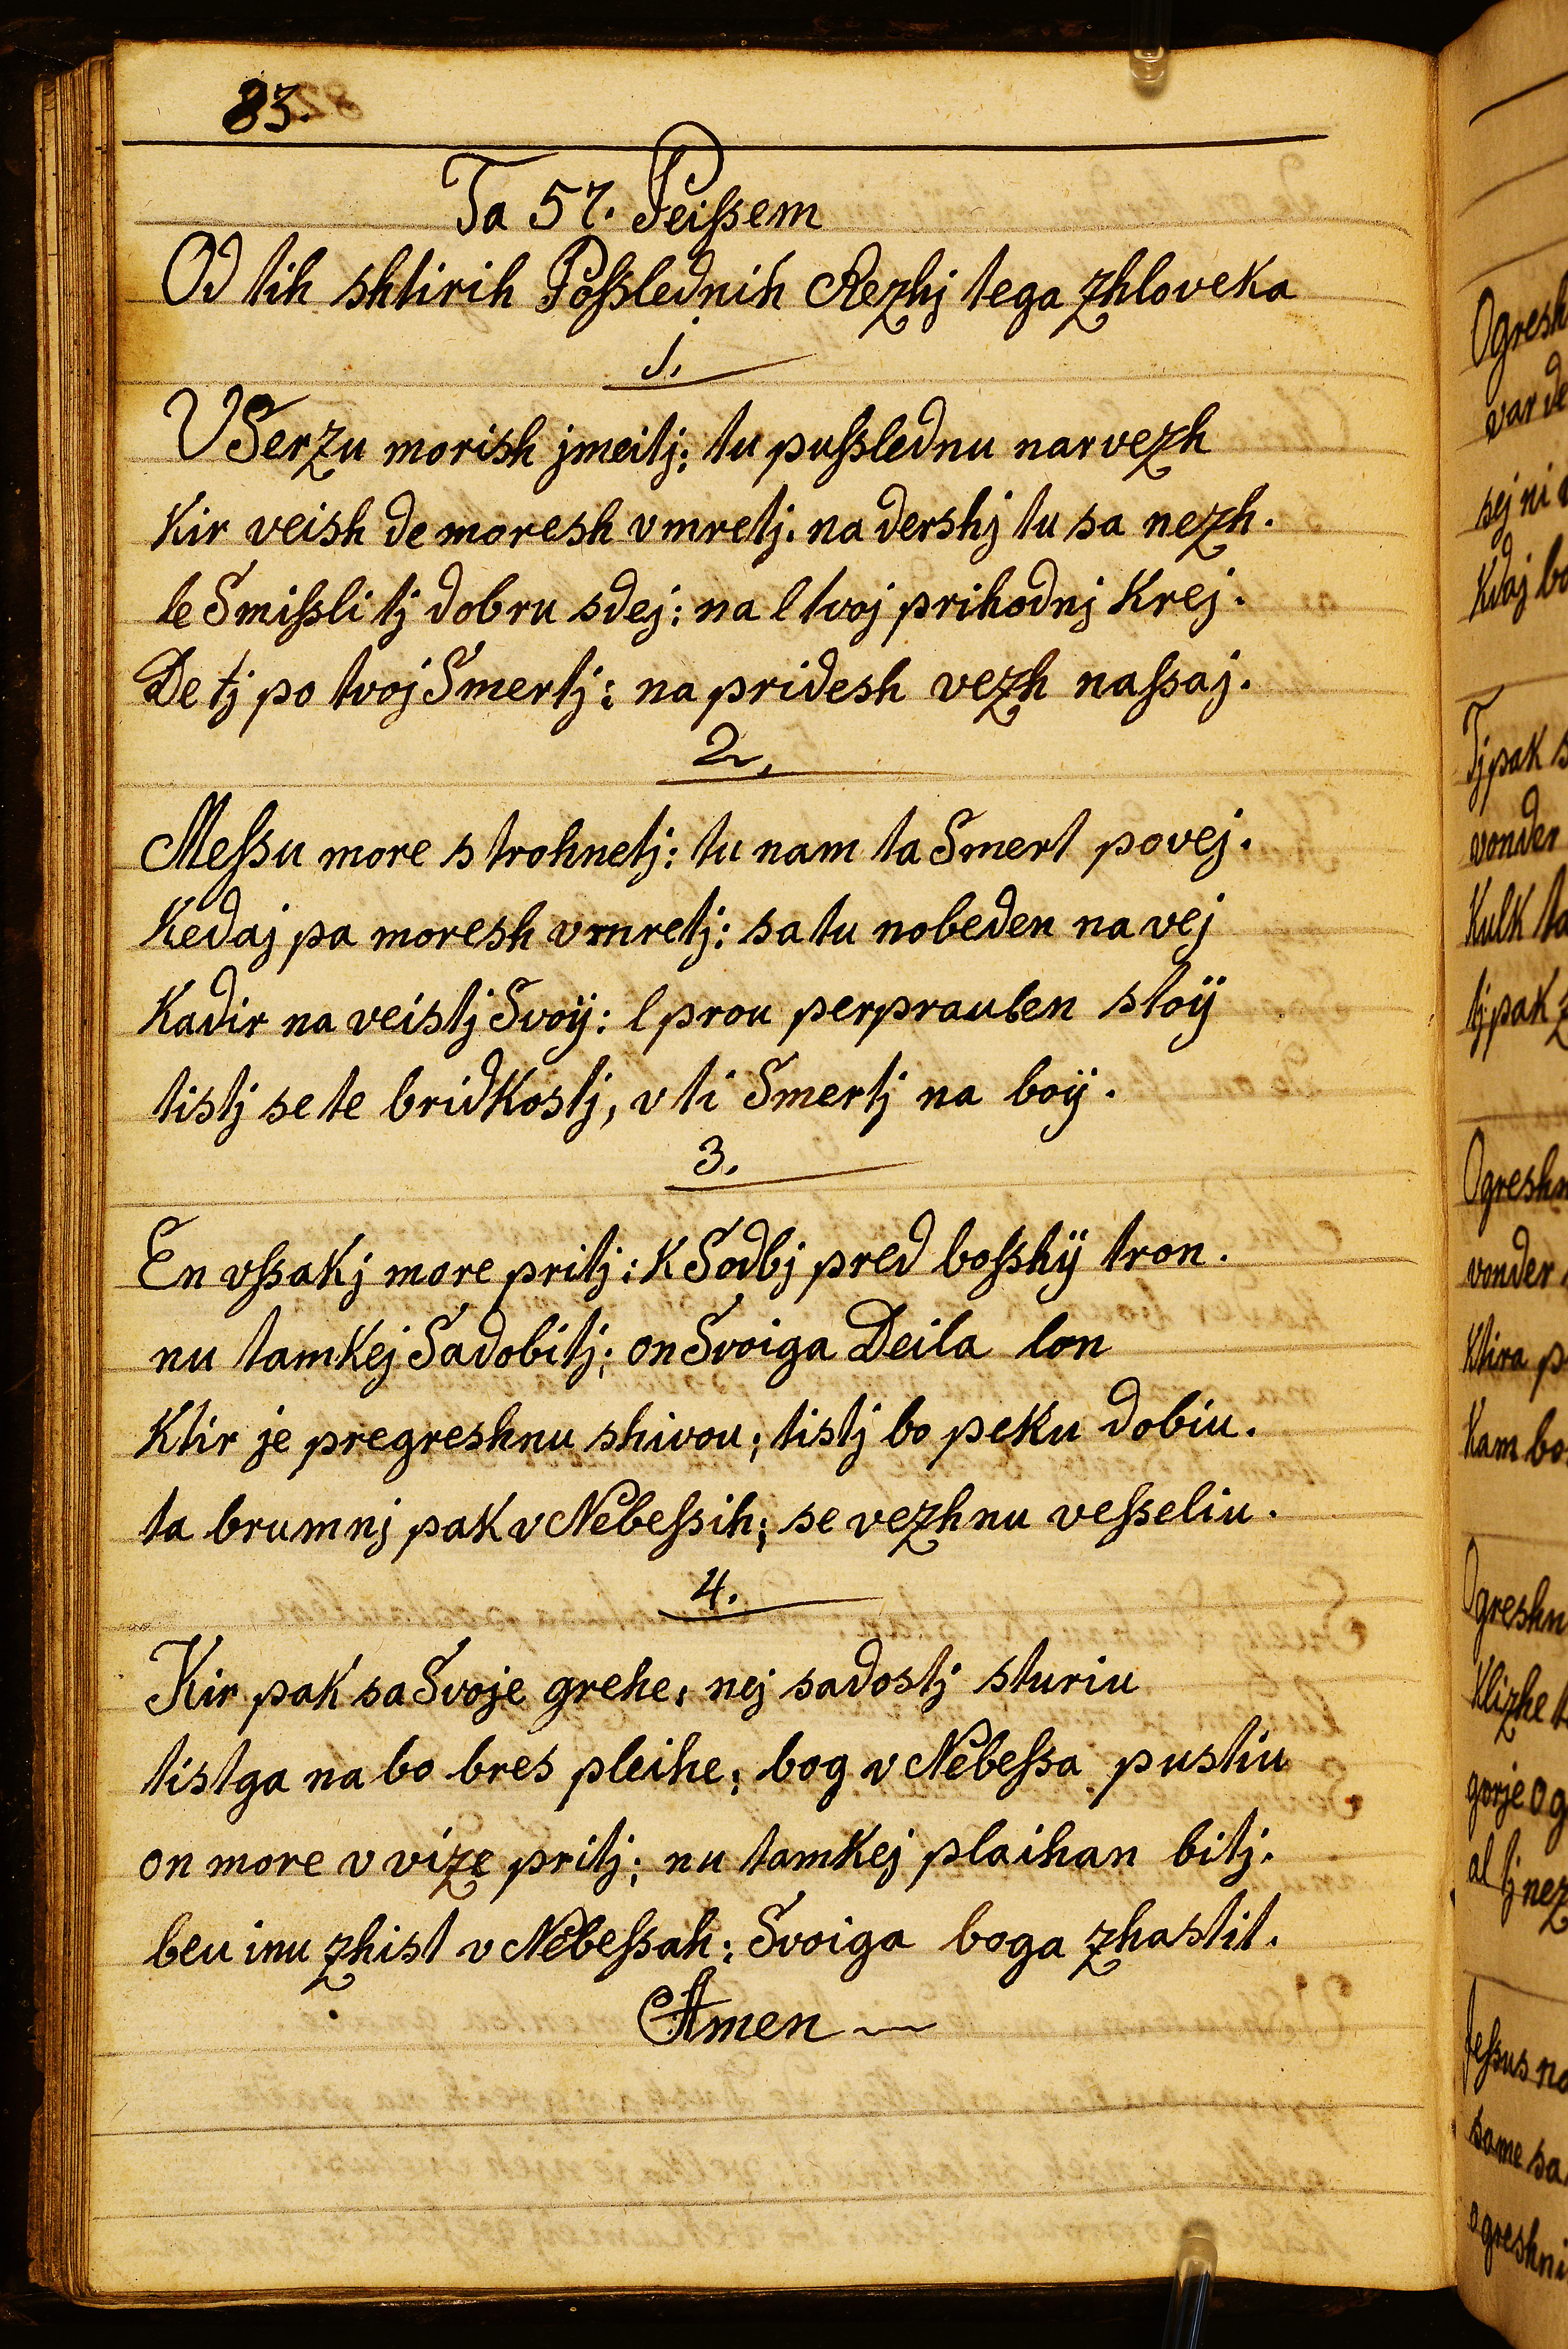 83.
Ta 57. Peißem
Od tih shtirih Poßslednih Rezhj tega zhloveka
1.
V Serzu morish jmeitj: tu pußlednu narvezh
Kir veish de moresh vmretj. na dershj tu sa nezh.
le Smißli tj dobru sdej: na l tvoj prihodnj Krej.
De tj po tvoj Smertj: na pridesh vezh naßaj.
2.
Meßu more strohnetj: tu nam ta Smert povej.
Kedaj pa moresh vmretj: sa tu nobeden na vej
Kadir na veistj Svoÿ: l prou perprauben stoÿ
tistj se te bridkostj, v ti Smertj na boÿ.
3.
En vßakj more pritj: K Sodbj pred boßhÿ tron.
nu tamkej Sadobitj: on Svoiga Deila lon
Ktir je pregreshnu shivou; tistj bo peku dobiu.
ta brumnj pak v Nebeßih; se vezhnu veßeliu.
4.
Kir pak sa Svoje grehe, nej sadostj sturiu
tistga na bo bres pleihe; bog v Nebeßa pustiu
on more v vize pritj; nu tamkej plaihan bitj.
beu inu zhist v Nebeßah; Svoiga boga zhastit.
Amen
Ogresh
var de
sej ni
Kdaj bo
Tj pak s
vonder
Kulk ta
tj pak z
Ogreshn
vonder
Ktira p
Kam bo
Ogreshn
Klizhe t
gorje o g
al tj nez
Jeßus na
same sa
ogreshni